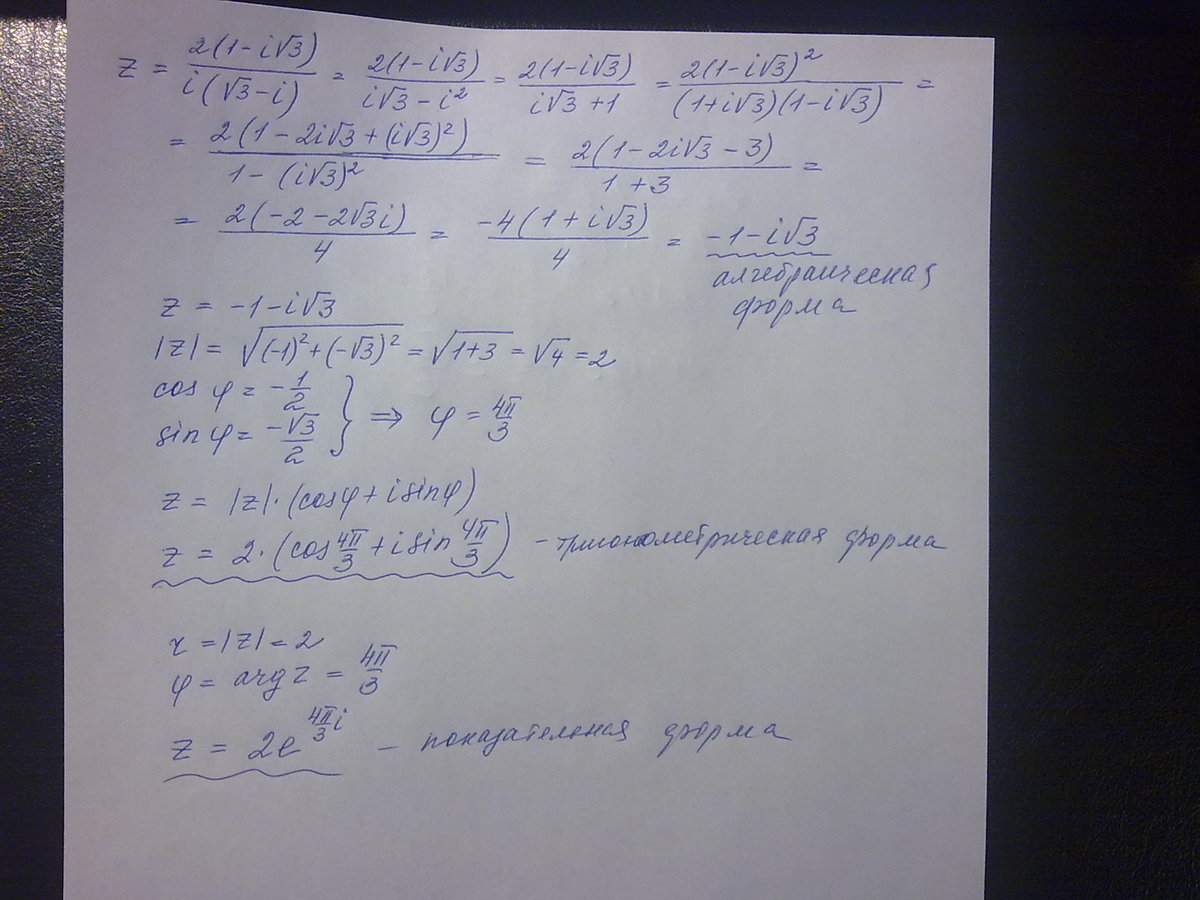 z = 2(1-i√3)/i(√3-i) = 2(1-i√3)/i√3-i² = 2(1-i√3)/i√3+1 = 2(1-i√3)²/(1+i√3)(1-i√3) =
= 2(1-2i√3+(i√3)²)/1-(i√3)² = 2(1-2i√3-3)/1+3 =
= 2(-2-2√3i)/4 = -4(1+i√3)/4 = -1-i√3
алгебраическая
форма
z = -1-i√3
|z| = √((-1)²+(-√3)²) = √(1+3) = √4 = 2
cos φ = -1/2
sin φ = -√3/2 } ⇒ φ = 4π/3
z = |z|·(cosφ+isinφ)
z = 2·(cos 4π/3 + i sin 4π/3) - тригонометрическая форма
r = |z| = 2
φ = arg z = 4π/3
z = 2e^(4π/3 i) - показательная форма